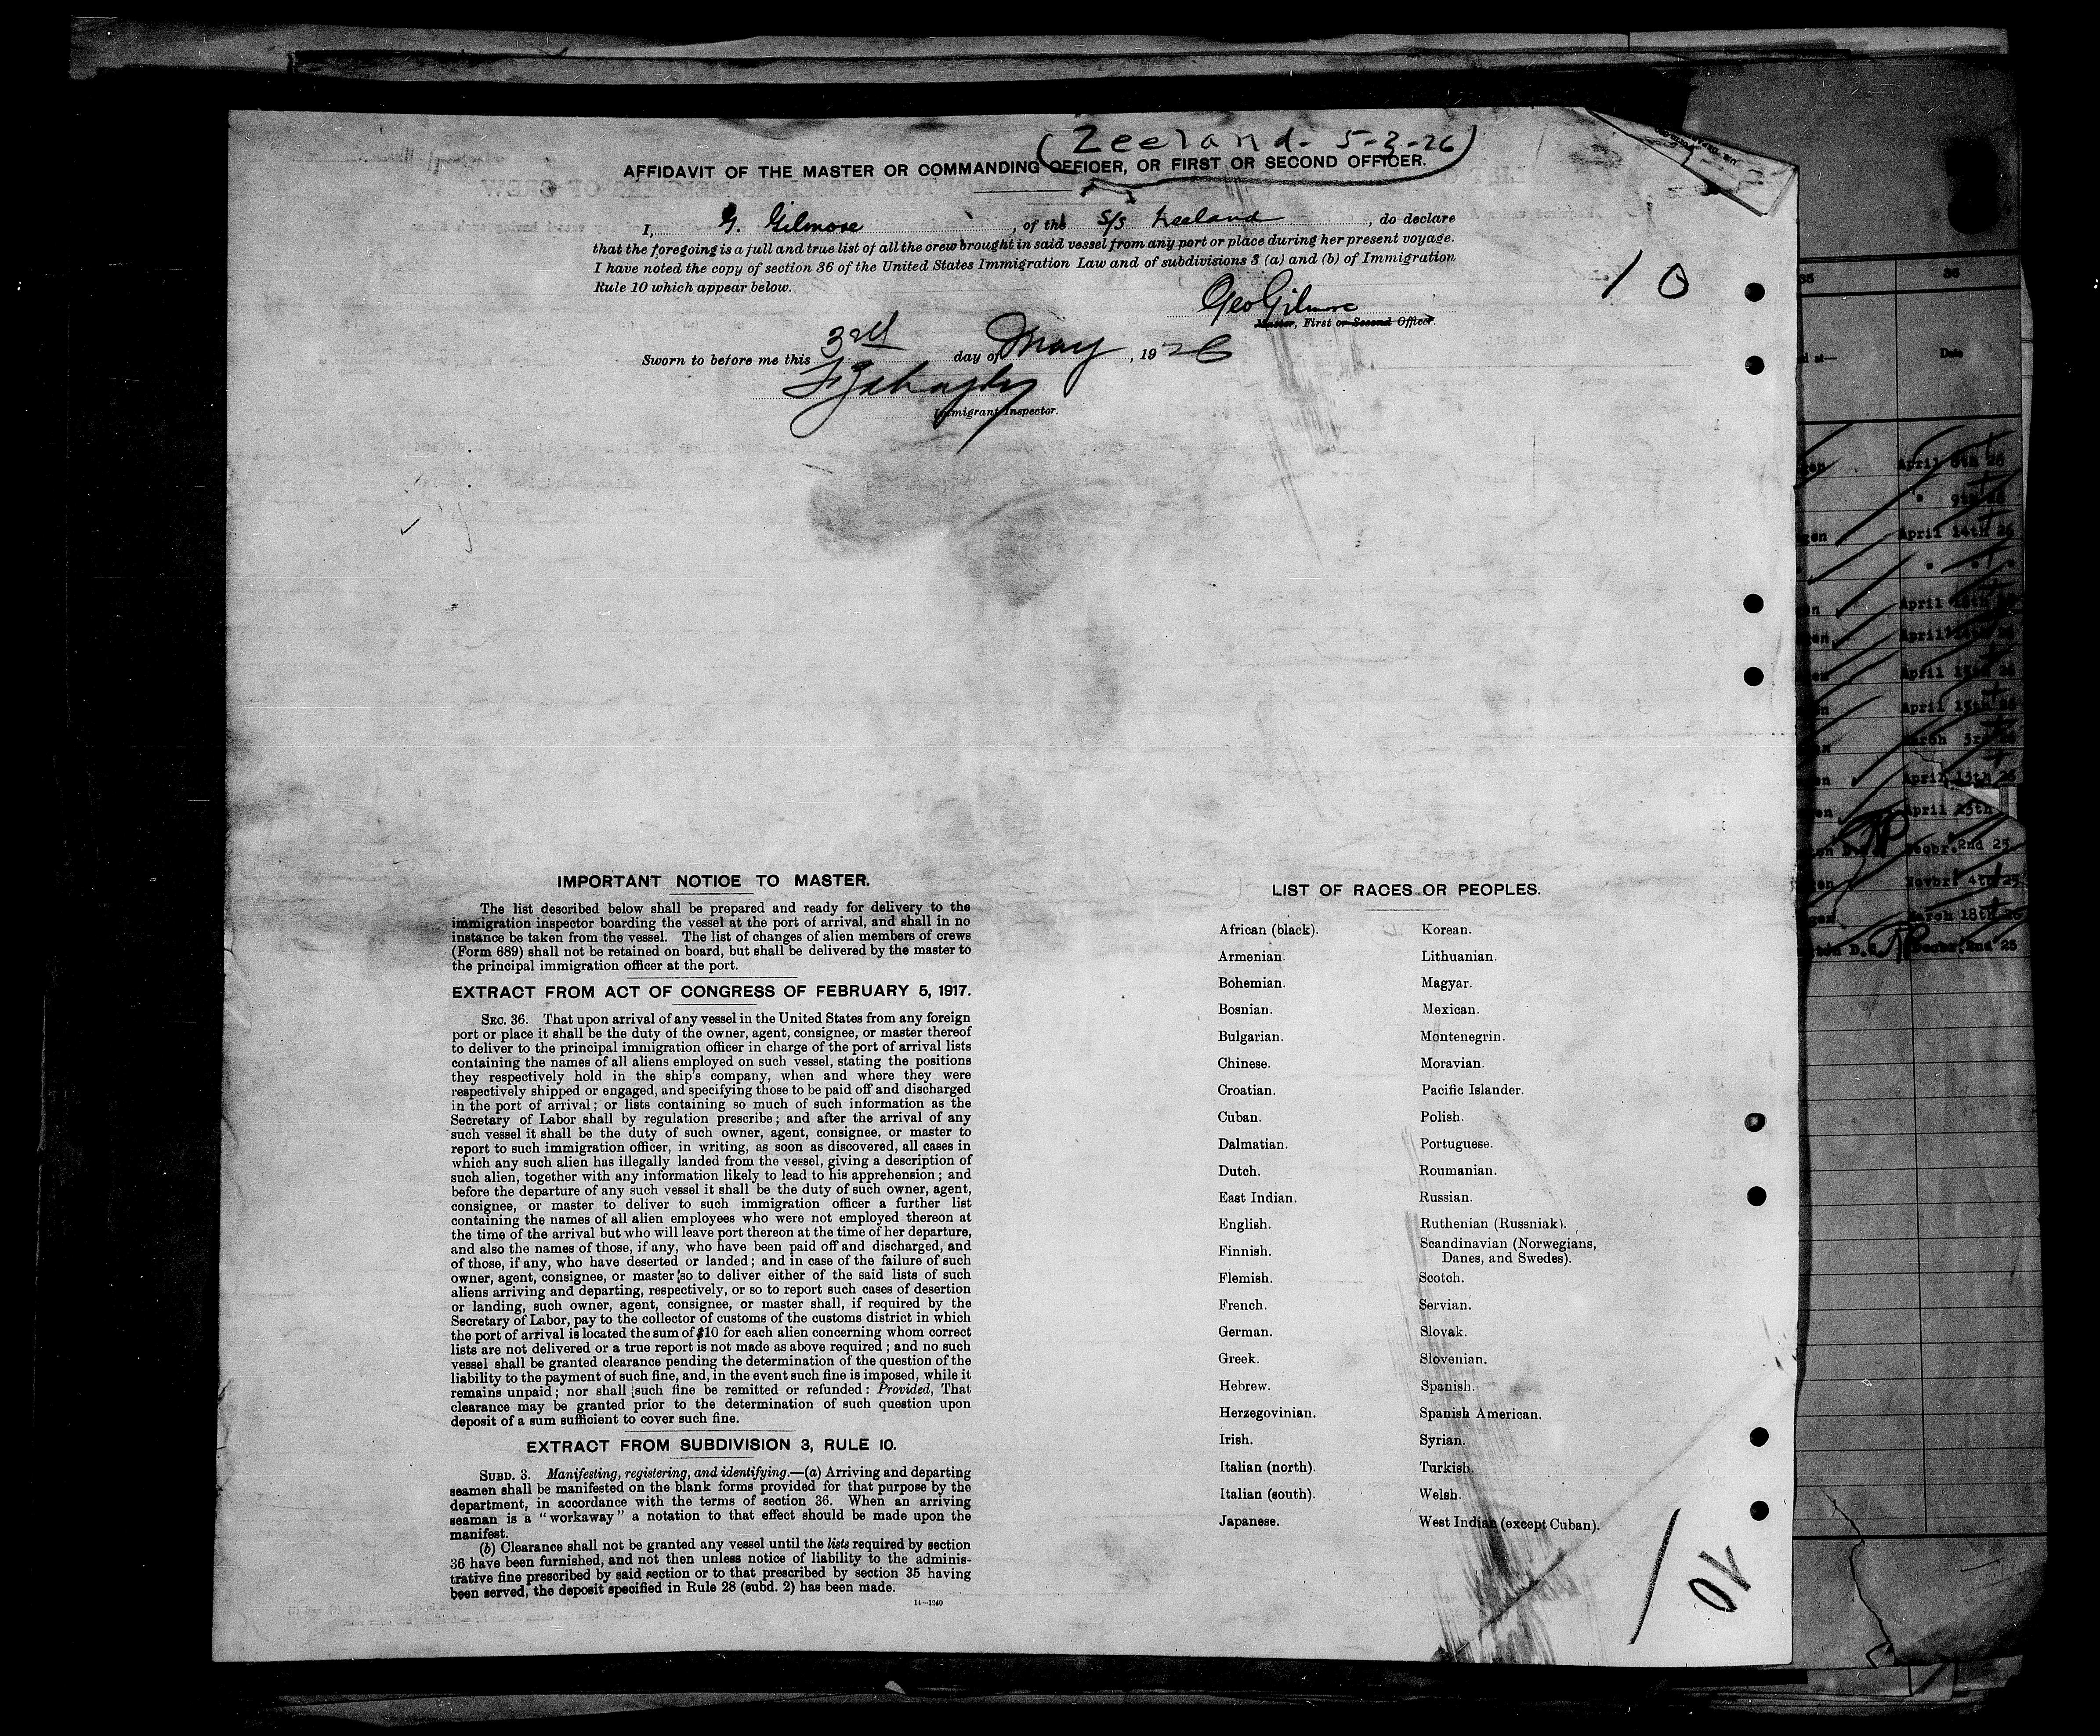 (Zeeland - 5-3-26)
AFFIDAVIT OF THE MASTER OR COMMANDING OFFICER, OR FIRST OR SECOND OFFICER.
I, G. Gilmore, of the S/S Zeeland, do declare
that the foregoing is a full and true list of all the crew brought in said vessel from any port or place during her present voyage.
I have noted the copy of section 36 of the United States Immigration Law and of subdivisions 3 (a) and (b) of Immigration
Rule 10 which appear below.
10
Geo Gilmore
Master, First or Second Officer.
Sworn to before me this 3rd day of May, 1926
Immigrant Inspector.
IMPORTANT NOTICE TO MASTER.
The list described below shall be prepared and ready for delivery to the
immigration inspector boarding the vessel at the port of arrival, and shall in no
instance be taken from the vessel. The list of changes of alien members of crews
(Form 689) shall not be retained on board, but shall be delivered by the master to
the principal immigration officer at the port.
EXTRACT FROM ACT OF CONGRESS OF FEBRUARY 5, 1917.
SEC. 36. That upon arrival of any vessel in the United States from any foreign
port or place it shall be the duty of the owner, agent, consignee, or master thereof
to deliver to the principal immigration officer in charge of the port of arrival lists
containing the names of all aliens employed on such vessel, stating the positions
they respectively hold in the ship's company, when and where they were
respectively shipped or engaged, and specifying those to be paid off and discharged
in the port of arrival; or lists containing so much of such information as the
Secretary of Labor shall by regulation prescribe; and after the arrival of any
such vessel it shall be the duty of such owner, agent, consignee, or master to
report to such immigration officer, in writing, as soon as discovered, all cases in
which any such alien has illegally landed from the vessel, giving a description of
such alien, together with any information likely to lead to his apprehension; and
before the departure of any such vessel it shall be the duty of such owner, agent,
consignee, or master to deliver to such immigration officer a further list
containing the names of all alien employees who were not employed thereon at
the time of the arrival but who will leave port thereon at the time of her departure,
and also the names of those, if any, who have been paid off and discharged, and
of those, if any, who have deserted or landed; and in case of the failure of such
owner, agent, consignee, or master so to deliver either of the said lists of such
aliens arriving and departing, respectively, or so to report such cases of desertion
or landing, such owner, agent, consignee, or master shall, if required by the
Secretary of Labor, pay to the collector of customs of the customs district in which
the port of arrival is located the sum of $10 for each alien concerning whom correct
lists are not delivered or a true report is not made as above required; and no such
vessel shall be granted clearance pending the determination of the question of the
liability to the payment of such fine, and, in the event such fine is imposed, while it
remains unpaid; nor shall such fine be remitted or refunded: Provided, That
clearance may be granted prior to the determination of such question upon
deposit of a sum sufficient to cover such fine.
EXTRACT FROM SUBDIVISION 3, RULE 10.
SUBD. 3. Manifesting, registering, and identifying.—(a) Arriving and departing
seamen shall be manifested on the blank forms provided for that purpose by the
department, in accordance with the terms of section 36. When an arriving
seaman is a "workaway" a notation to that effect should be made upon the
manifest.
(b) Clearance shall not be granted any vessel until the lists required by section
36 have been furnished, and not then unless notice of liability to the adminis-
trative fine prescribed by said section or to that prescribed by section 35 having
been served, the deposit specified in Rule 28 (subd. 2) has been made.
14—1240
LIST OF RACES OR PEOPLES.
African (black).
Armenian.
Bohemian.
Bosnian.
Bulgarian.
Chinese.
Croatian.
Cuban.
Dalmatian.
Dutch.
East Indian.
English.
Finnish.
Flemish.
French.
German.
Greek.
Hebrew.
Herzegovinian.
Irish.
Italian (north).
Italian (south).
Japanese.
Korean.
Lithuanian.
Magyar.
Mexican.
Montenegrin.
Moravian.
Pacific Islander.
Polish.
Portuguese.
Roumanian.
Russian.
Ruthenian (Russniak).
Scandinavian (Norwegians,
Danes, and Swedes).
Scotch.
Servian.
Slovak.
Slovenian.
Spanish.
Spanish American.
Syrian.
Turkish.
Welsh.
West Indian (except Cuban).
10
35
36
Date
April 8th 26
April 14th 26